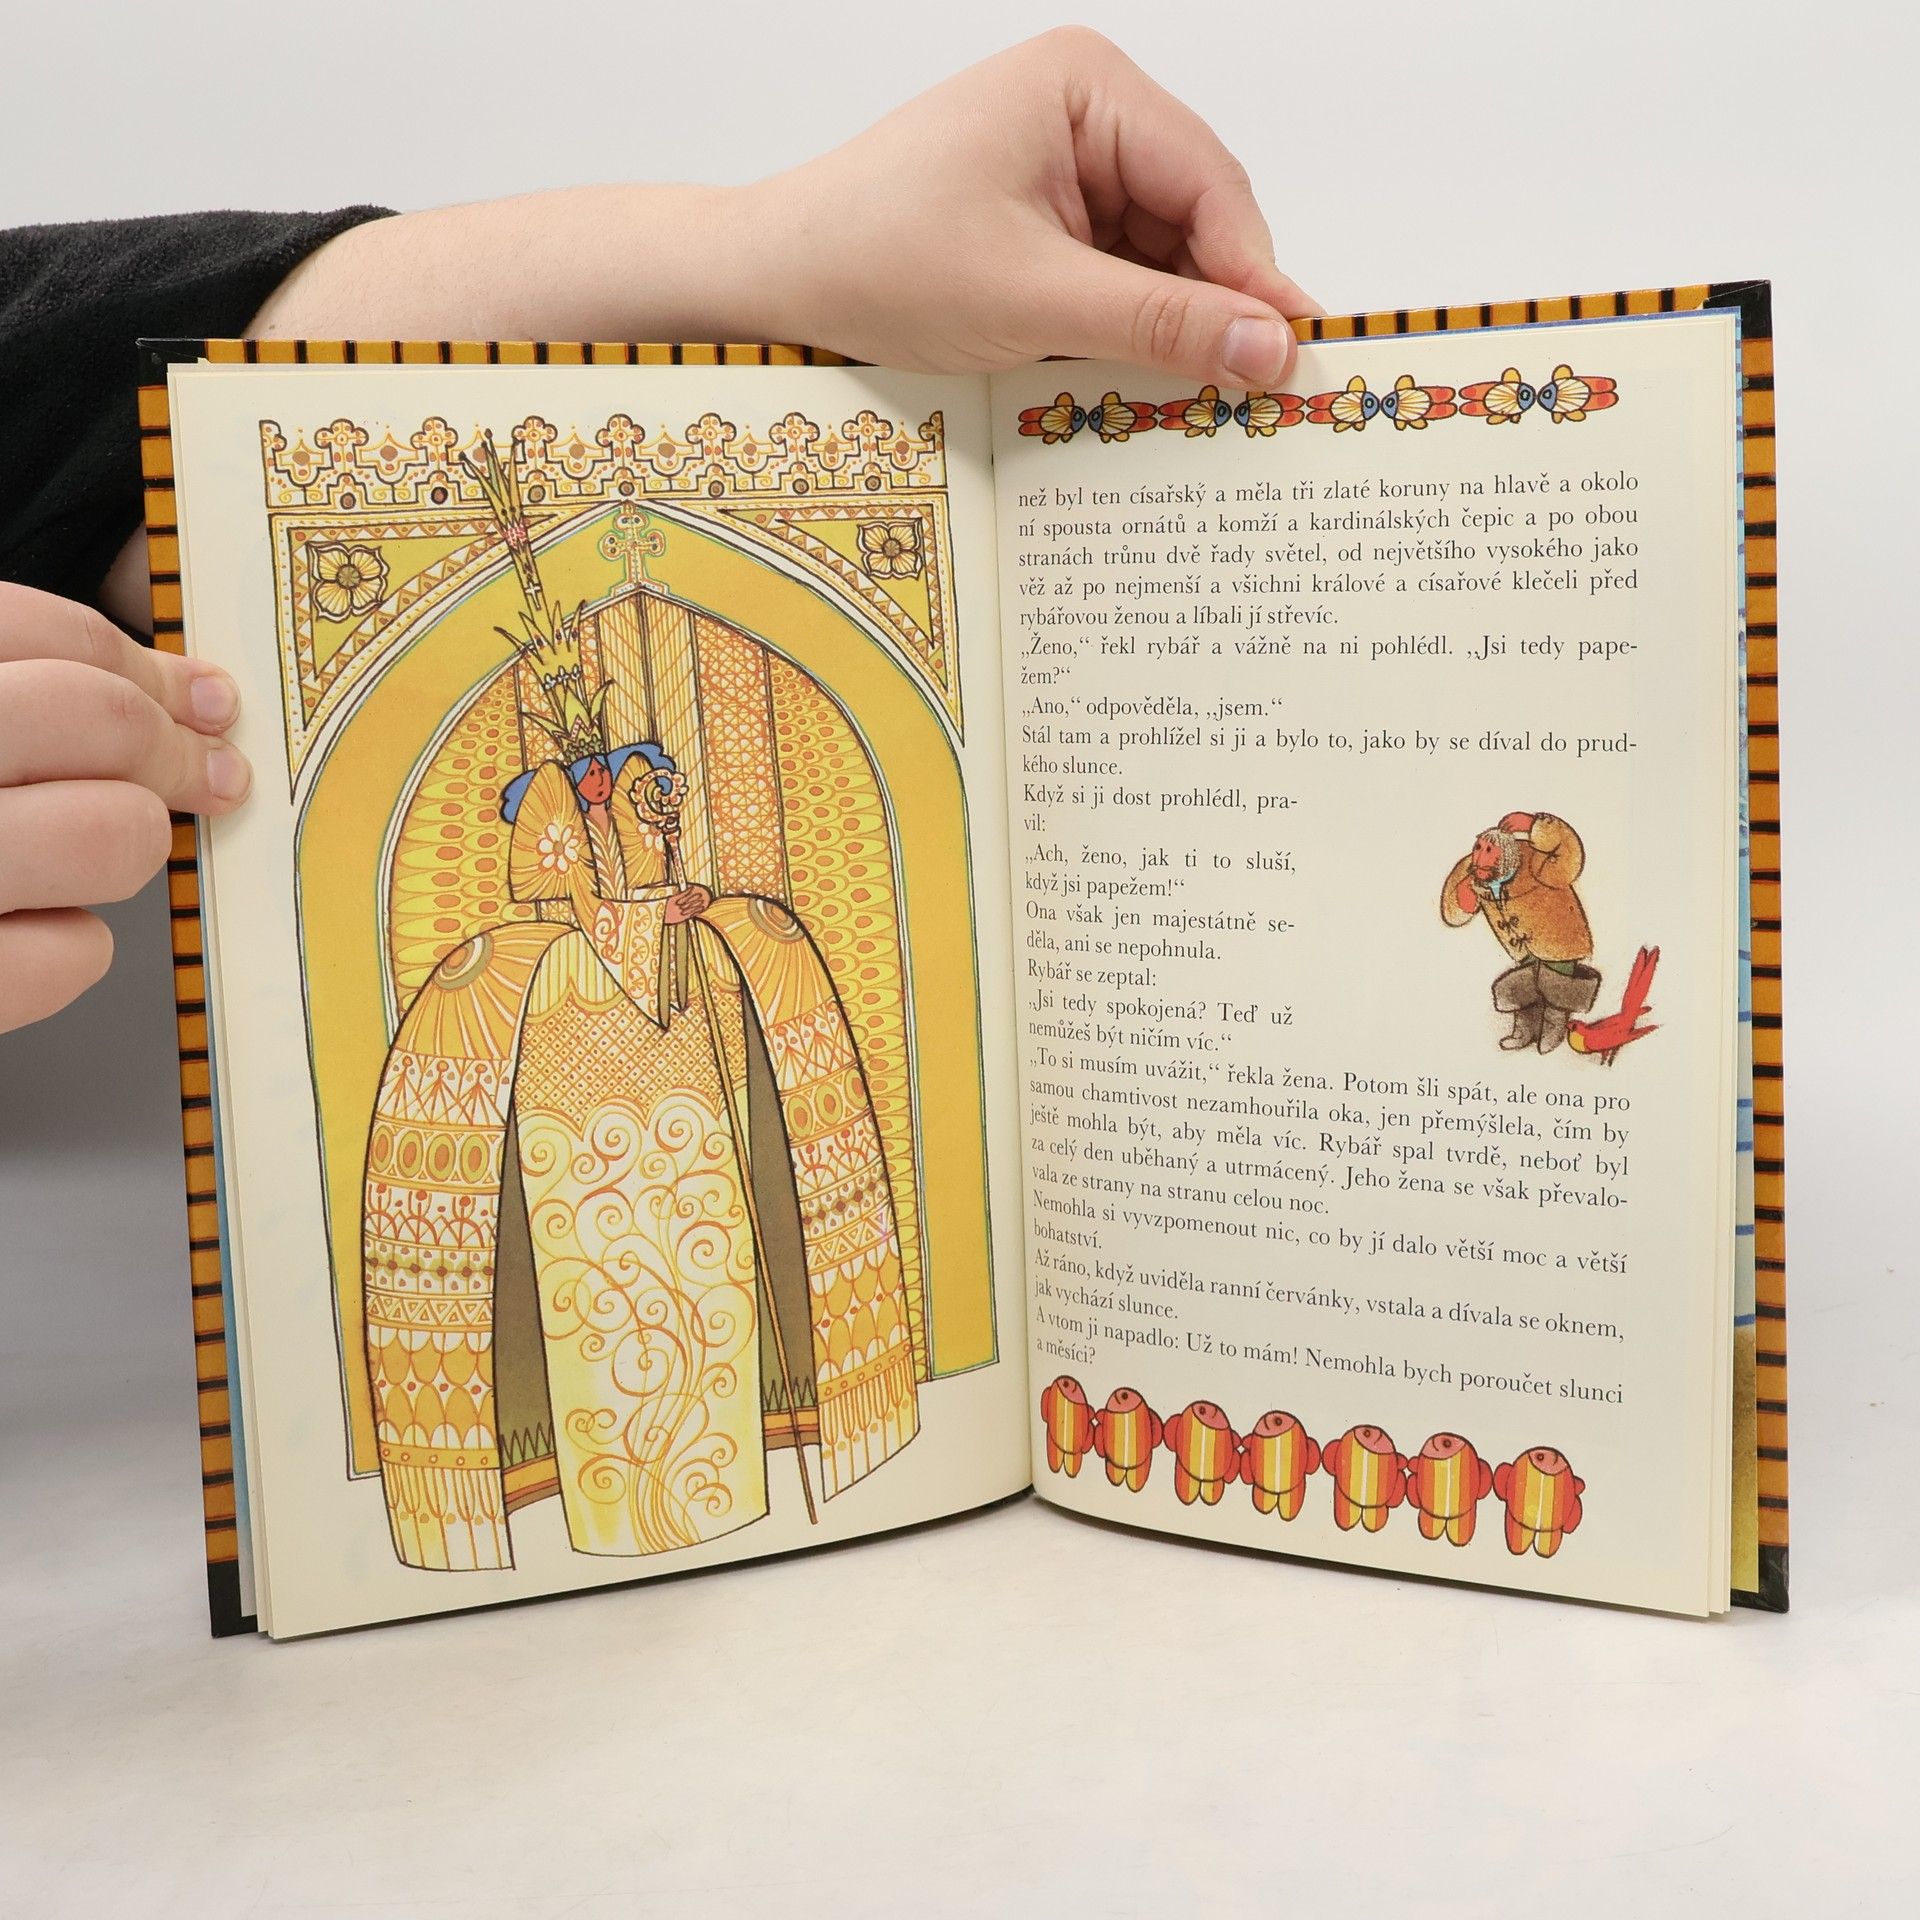 než byl ten císařský a měla tři zlaté koruny na hlavě a okolo
ní spousta ornátů a komží a kardinálských čepic a po obou
stranách trůnu dvě řady světel, od největšího vysokého jako
věž až po nejmenší a všichni králové a císařové klečeli před
rybářovou ženou a líbali jí střevíc.
„Ženo,“ řekl rybář a vážně na ni pohlédl. „Jsi tedy pape-
žem?“
„Ano,“ odpověděla, „jsem.“
Stál tam a prohlížel si ji a bylo to, jako by se díval do prud-
kého slunce.
Když si ji dost prohlédl, pra-
vil:
„Ach, ženo, jak ti to sluší,
když jsi papežem!“
Ona však jen majestátně se-
děla, ani se nepohnula.
Rybář se zeptal:
„Jsi tedy spokojená? Teď už
nemůžeš být ničím víc.“
„To si musím uvážit,“ řekla žena. Potom šli spát, ale ona pro
samou chamtivost nezamhouřila oka, jen přemýšlela, čím by
ještě mohla být, aby měla víc. Rybář spal tvrdě, neboť byl
za celý den uběhaný a utrmácený. Jeho žena se však převalo-
vala ze strany na stranu celou noc.
Nemohla si vyvzpomenout nic, co by jí dalo větší moc a větší
bohatství.
Až ráno, když uviděla ranní červánky, vstala a dívala se oknem,
jak vychází slunce.
A vtom ji napadlo: Už to mám! Nemohla bych poroučet slunci
a měsíci?